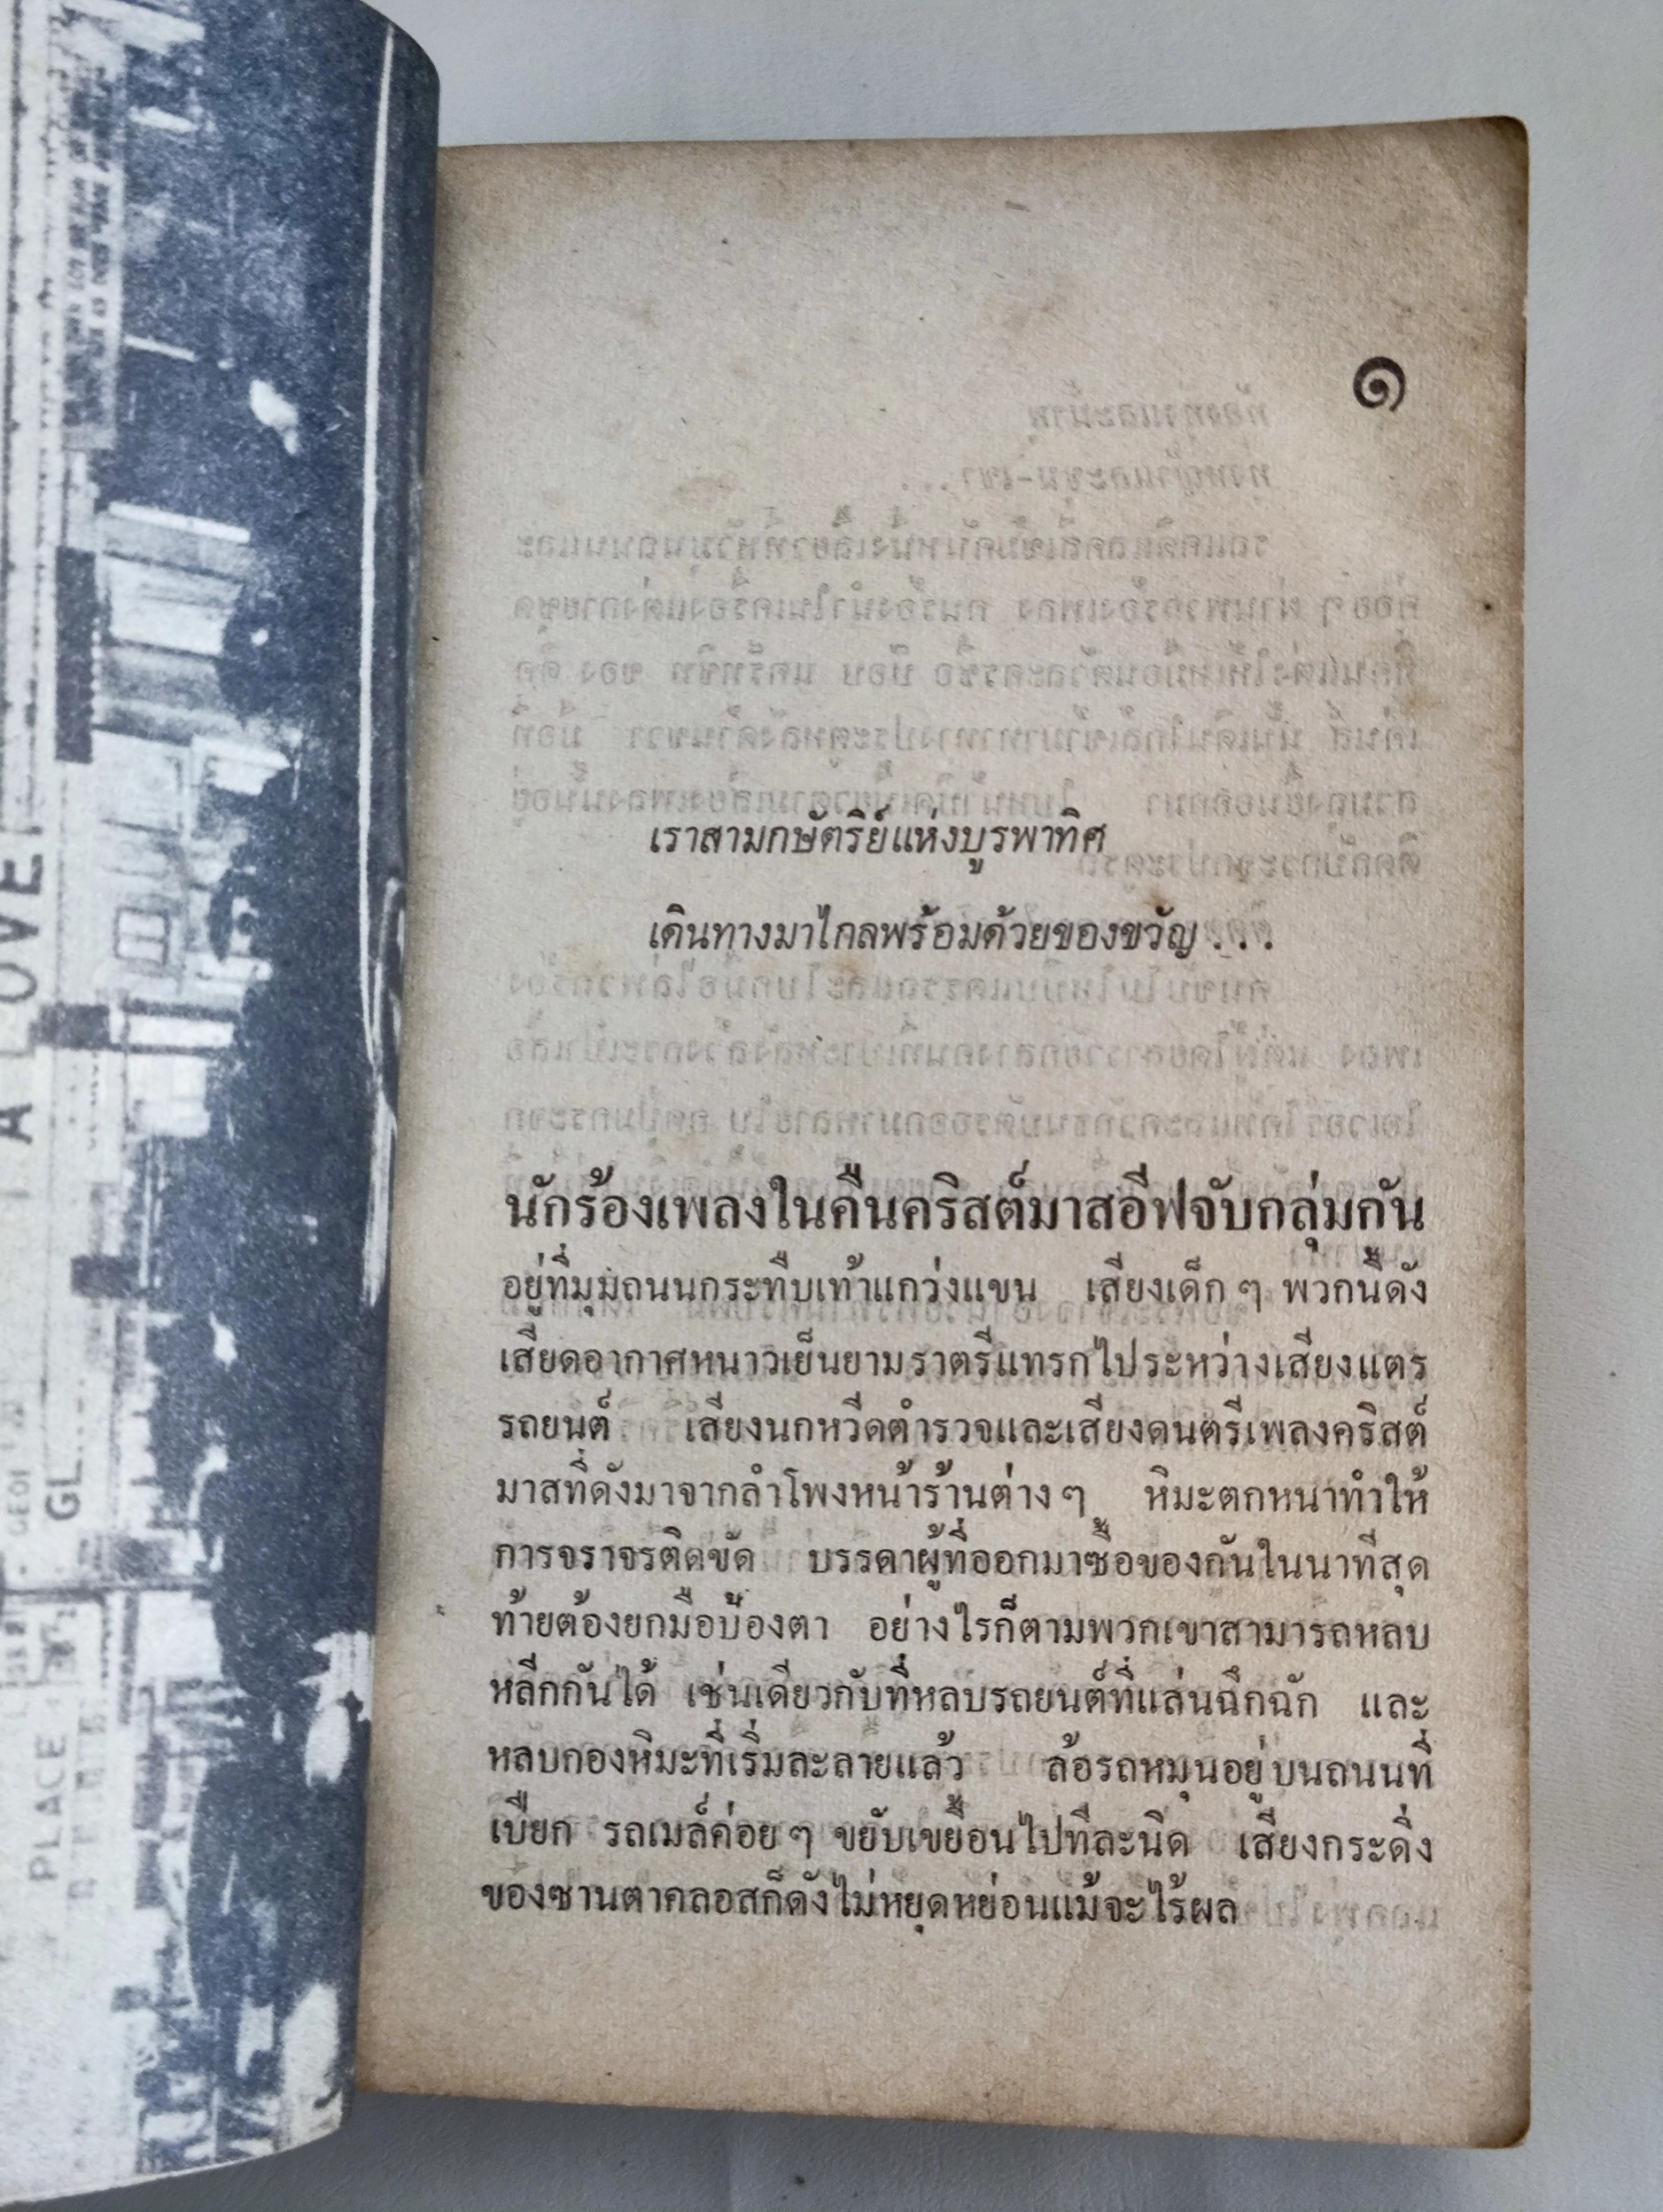 A LOVE
GL
PLACE
๑
เราสามกษัตริย์แห่งบูรพาทิศ
เดินทางมาไกลพร้อมด้วยของขวัญ . . .
นักร้องเพลงในคืนคริสต์มาสอีฟจับกลุ่มกัน
อยู่ที่มุมถนนกระทืบเท้าแกว่งแขน เสียงเด็ก ๆ พวกนี้ดัง
เสียดอากาศหนาวเย็นยามราตรีแทรกไประหว่างเสียงแตร
รถยนต์ เสียงนกหวีดตำรวจและเสียงดนตรีเพลงคริสต์
มาสที่ดังมาจากลำโพงหน้าร้านต่าง ๆ หิมะตกหนาทำให้
การจราจรติดขัด บรรดาผู้ที่ออกมาซื้อของกันในนาทีสุด
ท้ายต้องยกมือป้องตา อย่างไรก็ตามพวกเขาสามารถหลบ
หลีกกันได้ เช่นเดียวกับที่หลบรถยนต์ที่แล่นฉึกฉัก และ
หลบกองหิมะที่เริ่มละลายแล้ว ล้อรถหมุนอยู่บนถนนที่
เปียก รถเมล์ค่อย ๆ ขยับเขยื้อนไปทีละนิด เสียงกระดิ่ง
ของซานตาคลอสก็ดังไม่หยุดหย่อนแม้จะไร้ผล